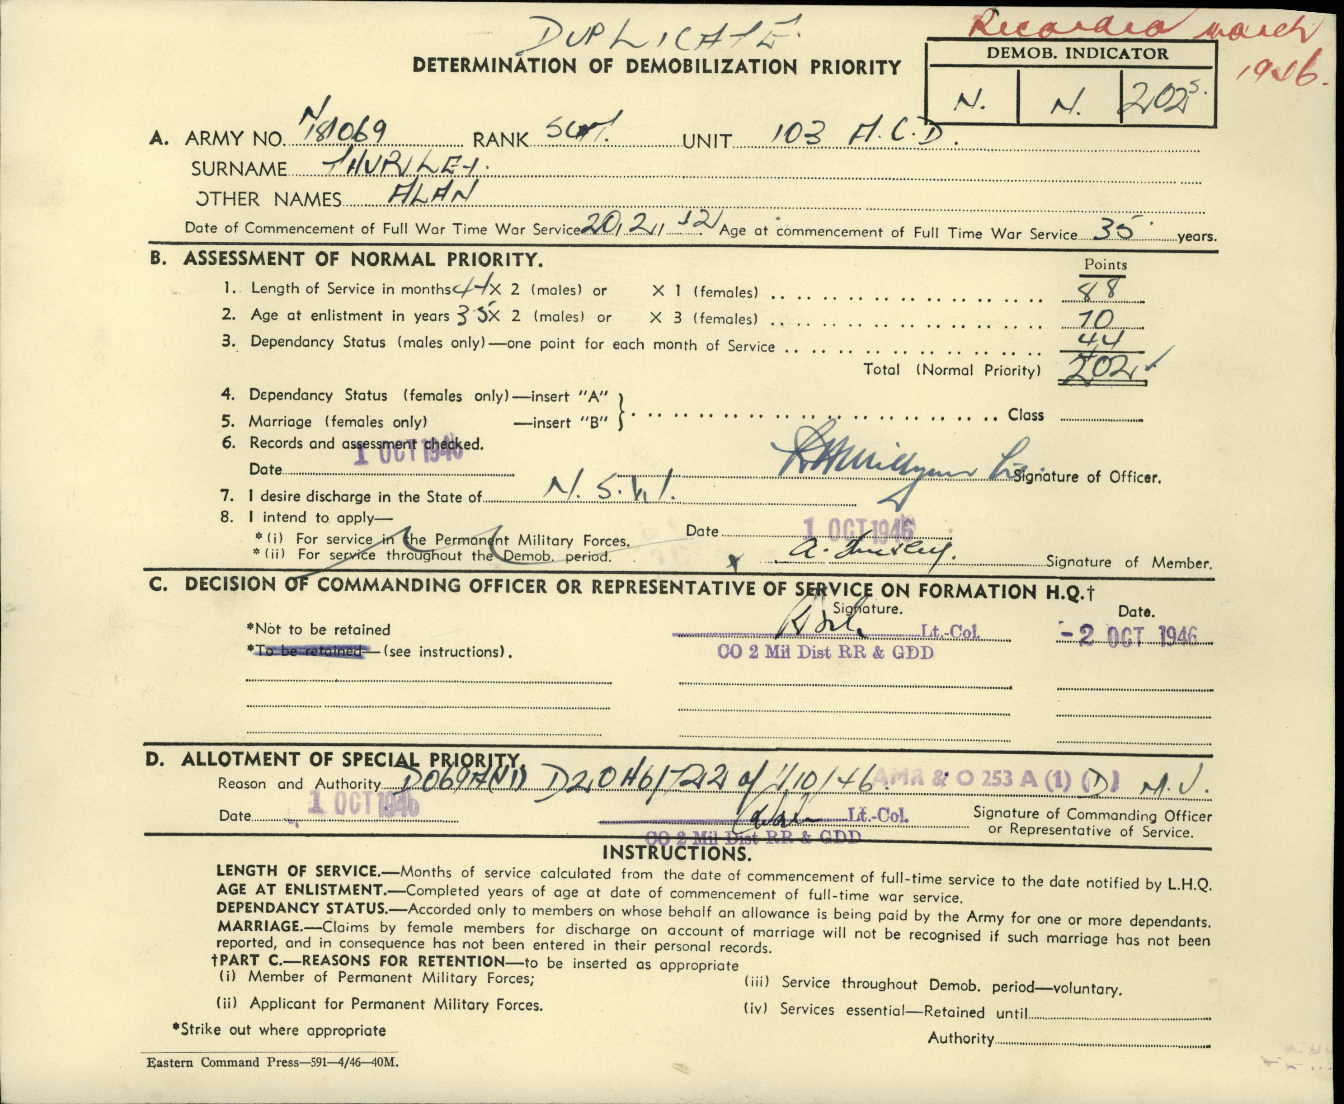 DUPLICATE.
Recorded march 1946.
DETERMINATION OF DEMOBILIZATION PRIORITY
DEMOB. INDICATOR
N. N. 202 S.
A. ARMY NO. N181069 RANK SGT. UNIT 103 A.C.D.
SURNAME THURLEY.
OTHER NAMES ALAN
Date of Commencement of Full War Time War Service 20.2.42 Age at commencement of Full Time War Service 35 years.
B. ASSESSMENT OF NORMAL PRIORITY.
Points
1. Length of Service in months 44 × 2 (males) or × 1 (females) 88
2. Age at enlistment in years 35 × 2 (males) or × 3 (females) 70
3. Dependancy Status (males only)—one point for each month of Service 44
Total (Normal Priority) 202
4. Dependancy Status (females only)—insert "A"
5. Marriage (females only) —insert "B" Class
6. Records and assessment checked.
Date 1 OCT 1946 Signature of Officer.
7. I desire discharge in the State of N.S.W.
8. I intend to apply—
*(i) For service in the Permanent Military Forces. Date 1 OCT 1946
*(ii) For service throughout the Demob. period. x A. Thurley. Signature of Member.
C. DECISION OF COMMANDING OFFICER OR REPRESENTATIVE OF SERVICE ON FORMATION H.Q.†
Signature. Date.
*Not to be retained Lt.-Col. -2 OCT 1946
*To be retained—(see instructions). CO 2 Mil Dist RR & GDD
D. ALLOTMENT OF SPECIAL PRIORITY.
Reason and Authority of 1/10/46. AMR & O 253 A (1) (D) M.J.
Date 1 OCT 1946 Lt.-Col. Signature of Commanding Officer
or Representative of Service.
CO 2 Mil Dist RR & GDD
INSTRUCTIONS.
LENGTH OF SERVICE.—Months of service calculated from the date of commencement of full-time service to the date notified by L.H.Q.
AGE AT ENLISTMENT.—Completed years of age at date of commencement of full-time war service.
DEPENDANCY STATUS.—Accorded only to members on whose behalf an allowance is being paid by the Army for one or more dependants.
MARRIAGE.—Claims by female members for discharge on account of marriage will not be recognised if such marriage has not been
reported, and in consequence has not been entered in their personal records.
†PART C.—REASONS FOR RETENTION—to be inserted as appropriate
(i) Member of Permanent Military Forces; (iii) Service throughout Demob. period—voluntary.
(ii) Applicant for Permanent Military Forces. (iv) Services essential—Retained until
*Strike out where appropriate Authority
Eastern Command Press—591—4/46—40M.